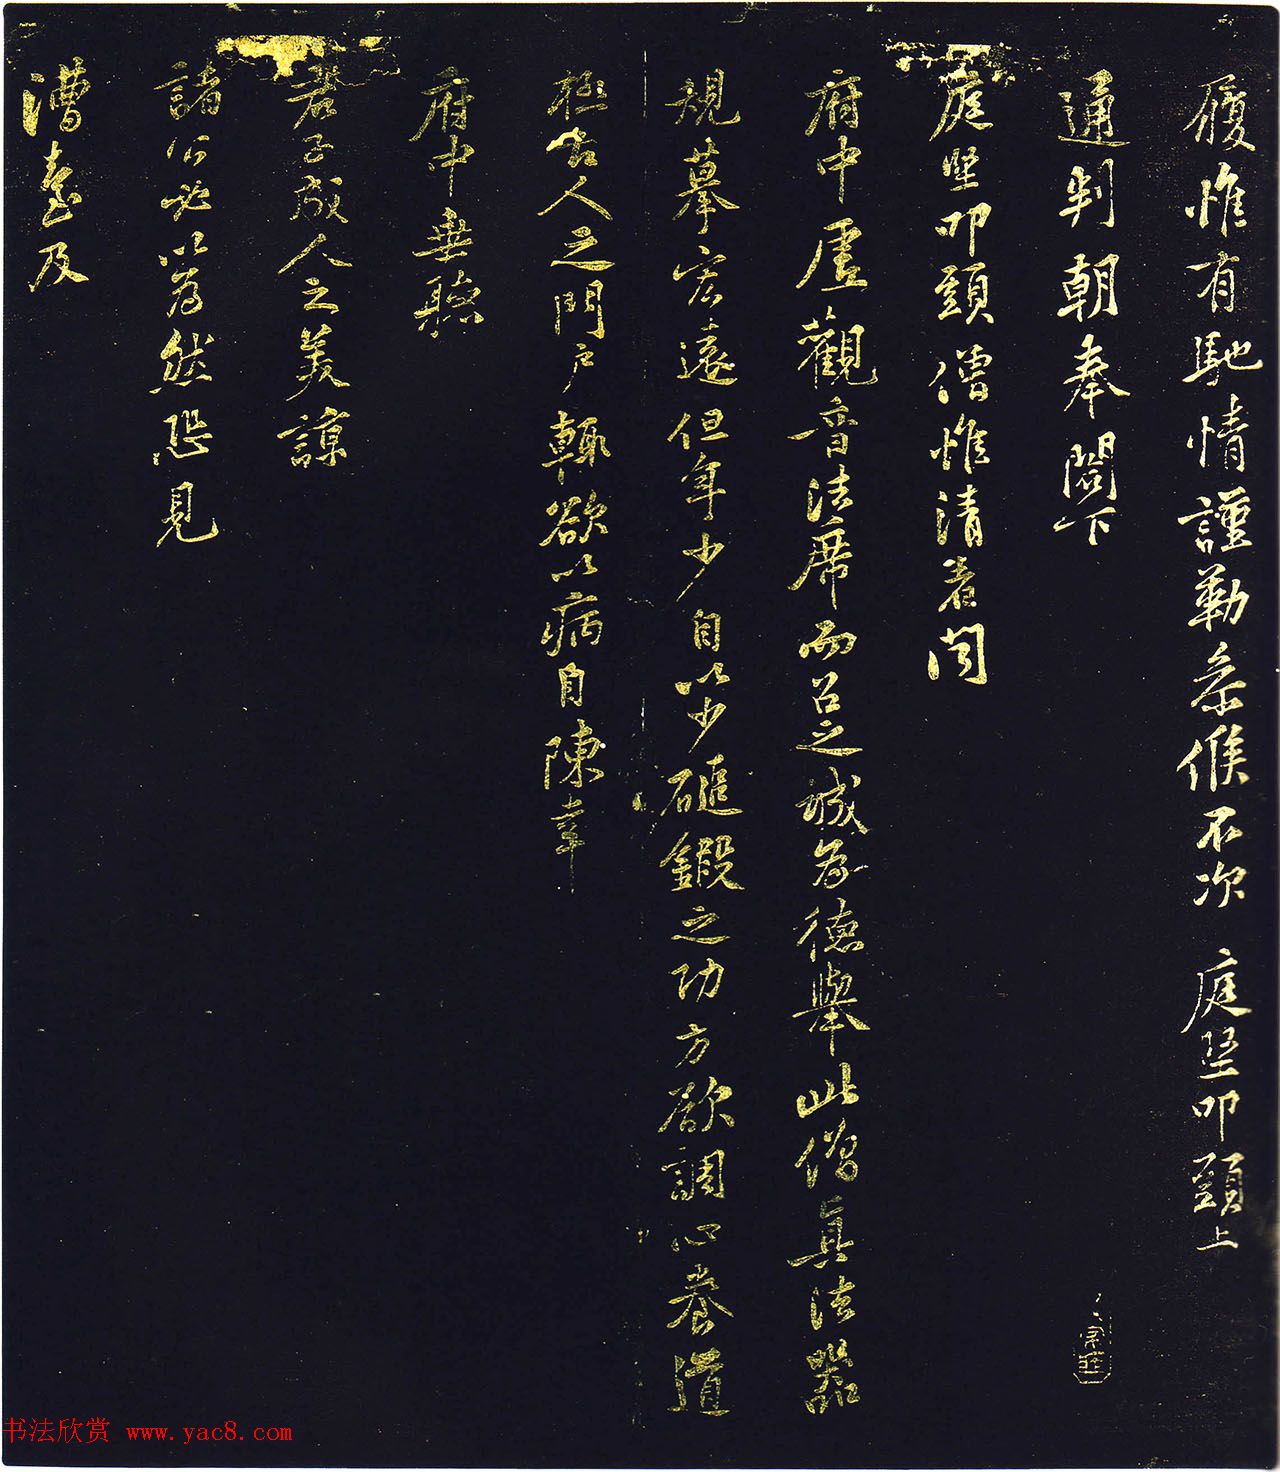 履惟有馳情謹勒參候不次 庭堅叩頭上
通判朝奉閤下
庭堅叩頭僧惟清者聞
府中虛觀音法席而召之誠為德舉此僧真法器
規摹宏遠但年少自以少磓鍛之功方欲調心養道
極古人之門戶輒欲以病自陳幸
府中垂聽
君子成人之美諒
諸公必以為然恐見
漕臺及
书法欣赏 www.yac8.com